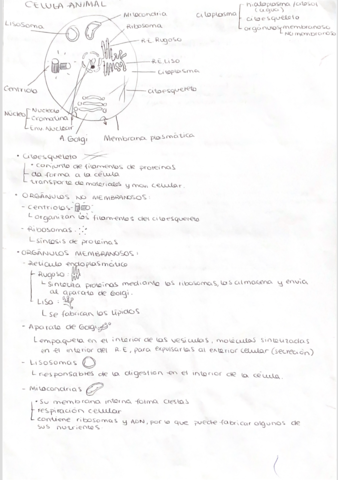 CELULA ANIMAL
Mitocondria
Ribosoma
R.E. Rugoso
R.E. Liso
Citoplasma
Citoesqueleto
Lisosoma
Centriolo
Núcleo
Nucleolo
Cromatina
Env. Nuclear
A. Golgi
Membrana plasmática
Citoplasma
citoesqueleto
orgánulos
membranosos
no membranosos
• Citoesqueleto
• conjunto de filamentos de proteinas
- da forma a la célula
- transporte de materiales y mov. celular.
• ORGÁNULOS NO MEMBRANOSOS:
- Centriolos:
organizan los filamentos del citoesqueleto
- Ribosomas:
sintesis de proteinas
• ORGÁNULOS MEMBRANOSOS:
- Reticulo endoplasmático
Rugoso:
Sintetiza proteinas mediante los ribosomas, las almacena y envia
al aparato de Golgi.
Liso:
se fabrican los lipidos
- Aparato de Golgi
empaqueta en el interior de las vesiculas, moléculas sintetizadas
en el interior del R.E, para expulsarlas al exterior celular (secreción)
- Lisosomas
responsables de la digestion en el interior de la célula.
- Mitocondrias
• su membrana interna forma crestas
- respiración celular
- contiene ribosomas y ADN, por lo que puede fabricar algunos de
sus nutrientes